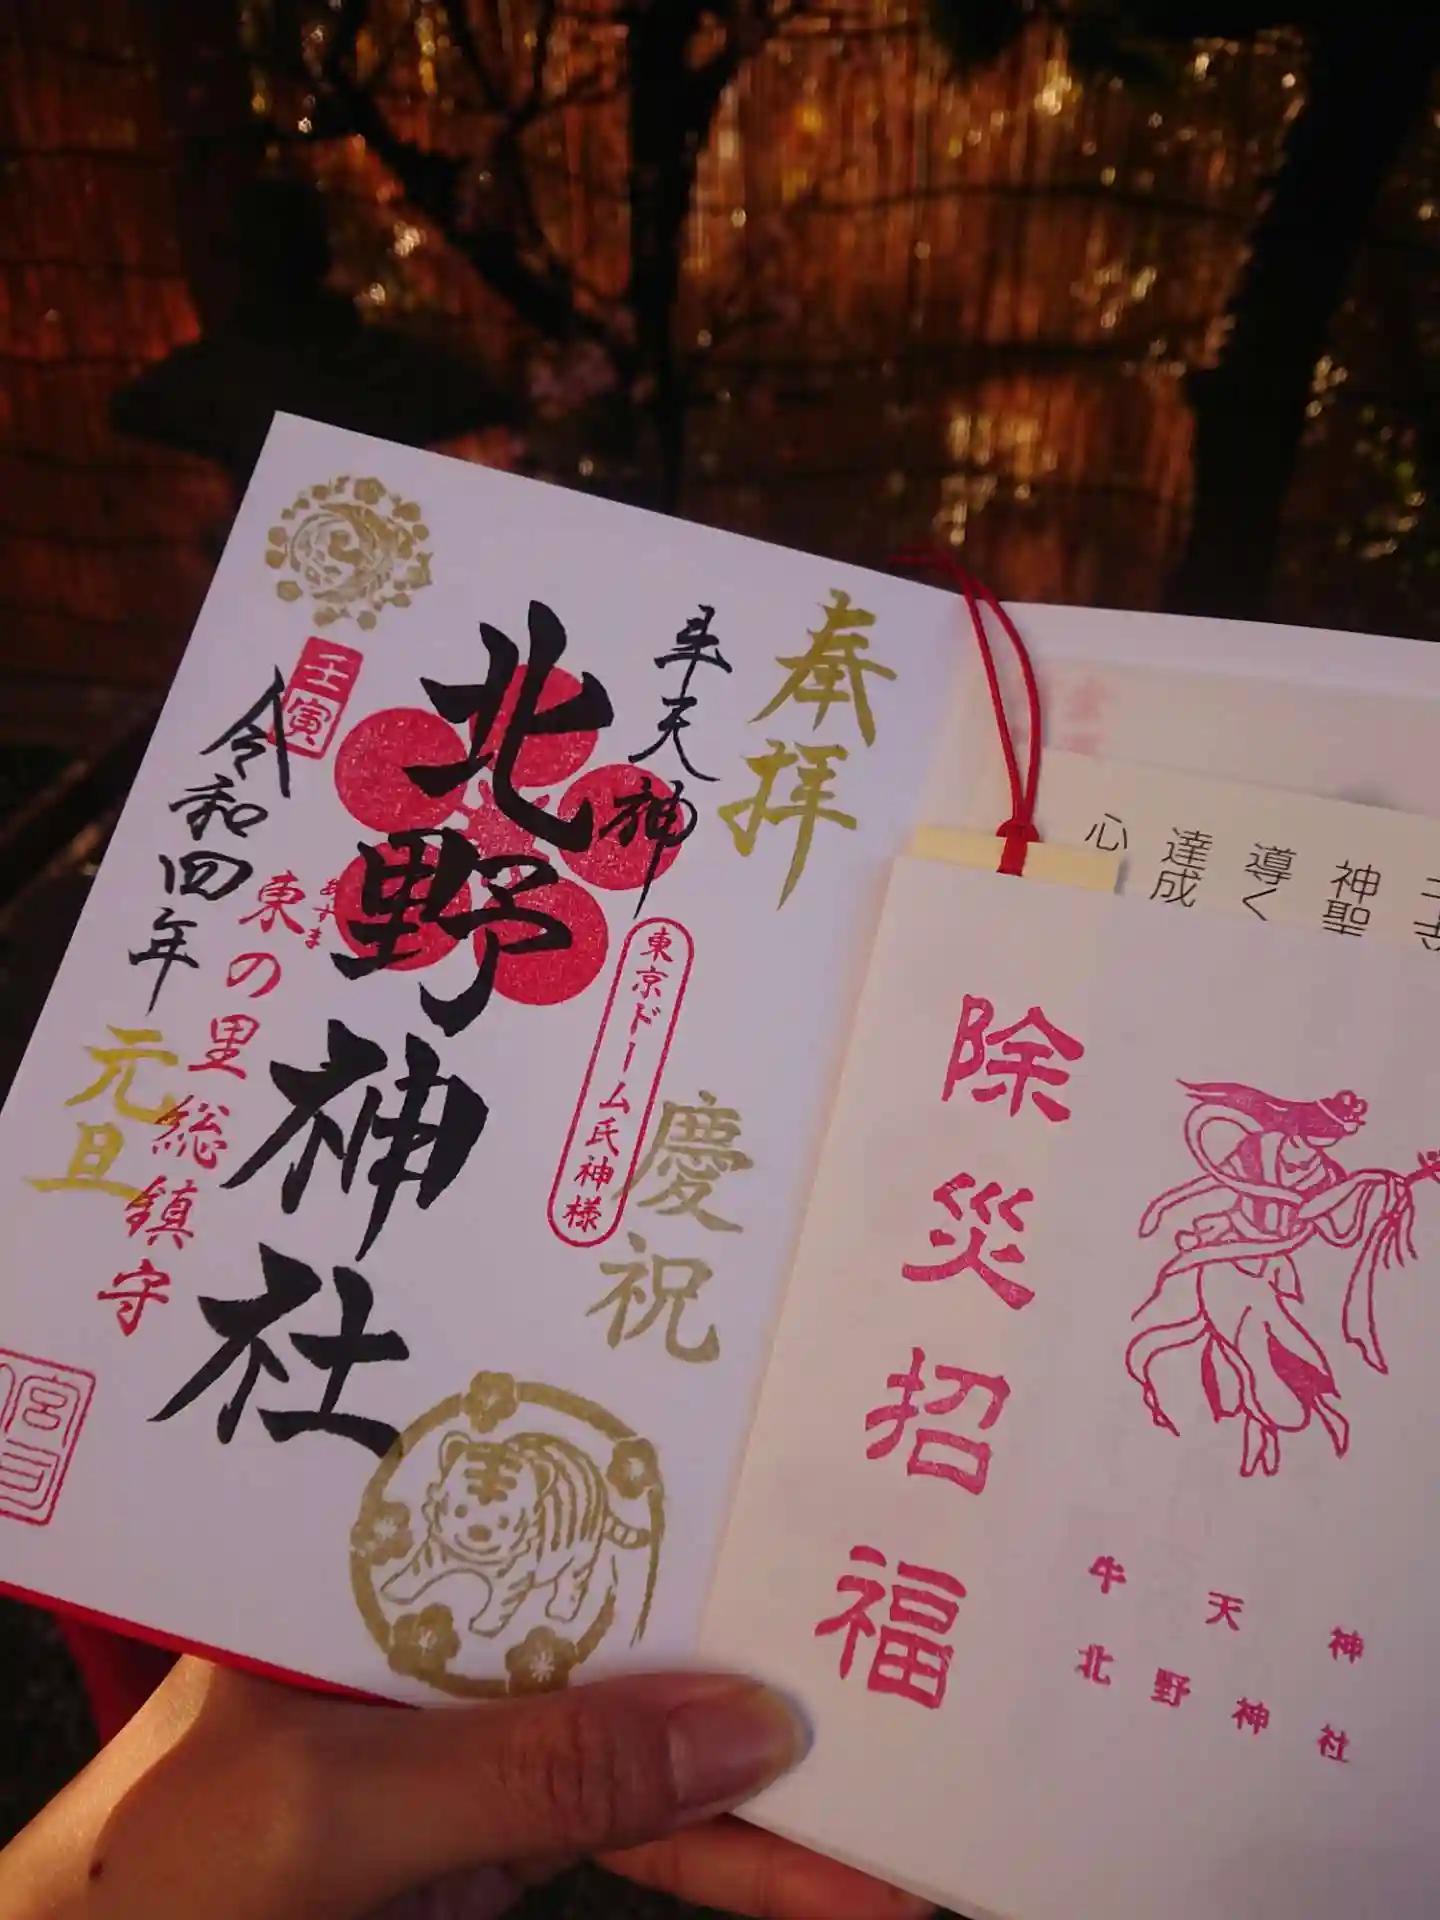 奉拝
慶祝
牛天神
東京ドーム氏神様
北野神社
あずま
東の里総鎮守
壬寅
令和四年
元旦
宮司
心
達成
導く
神聖
除災招福
牛天神
北野神社